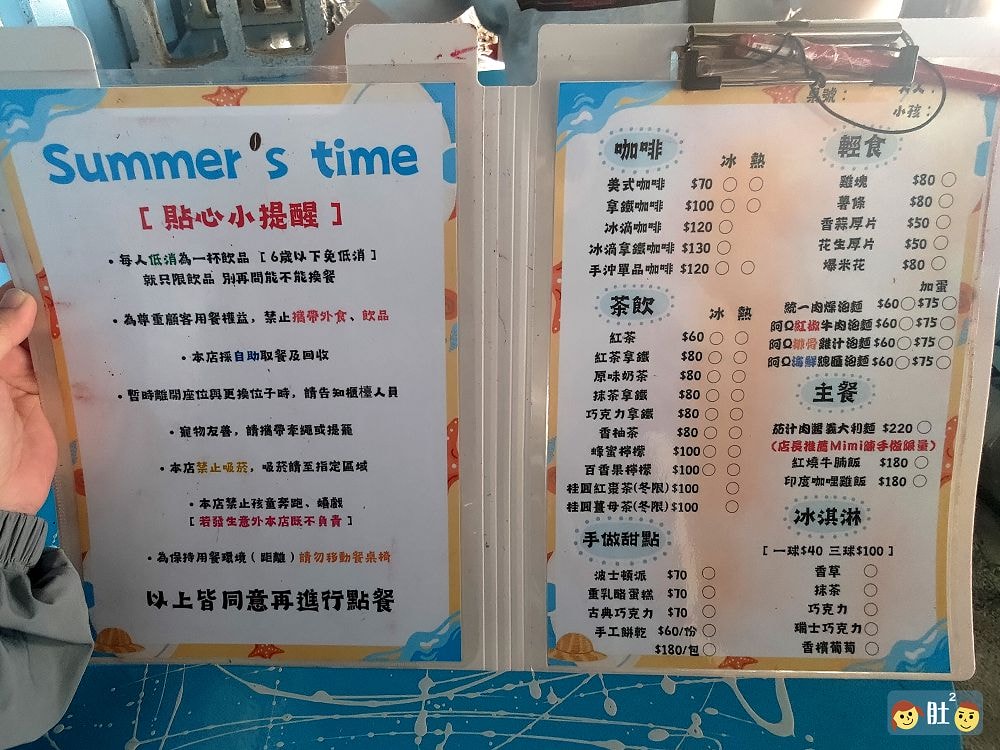 Summer's time
[ 貼心小提醒 ]
・每人低消為一杯飲品 [ 6歲以下免低消 ]
就只限飲品 別再問能不能換餐
・為尊重顧客用餐權益，禁止攜帶外食、飲品
・本店採自助取餐及回收
・暫時離開座位與更換位子時，請告知櫃檯人員
・寵物友善，請攜帶牽繩或提籠
・本店禁止吸菸，吸菸請至指定區域
・本店禁止孩童奔跑、嬉戲
[ 若發生意外本店既不負責 ]
・為保持用餐環境（距離）請勿移動餐桌椅
以上皆同意再進行點餐
桌號：
大人：
小孩：
咖啡
冰 熱
美式咖啡 $70 ○ ○
拿鐵咖啡 $100 ○ ○
冰滴咖啡 $120 ○
冰滴拿鐵咖啡 $130 ○
手沖單品咖啡 $120 ○ ○
茶飲
冰 熱
紅茶 $60 ○ ○
紅茶拿鐵 $80 ○ ○
原味奶茶 $80 ○ ○
抹茶拿鐵 $80 ○ ○
巧克力拿鐵 $80 ○ ○
香柚茶 $80 ○ ○
蜂蜜檸檬 $100 ○ ○
百香果檸檬 $100 ○ ○
桂圓紅棗茶(冬限) $100 ○
桂圓薑母茶(冬限) $100 ○
手做甜點
波士頓派 $70 ○
重乳酪蛋糕 $70 ○
古典巧克力 $70 ○
手工餅乾 $60/份 ○
$180/包 ○
輕食
雞塊 $80 ○
薯條 $80 ○
香蒜厚片 $50 ○
花生厚片 $50 ○
爆米花 $80 ○
加蛋
統一肉燥泡麵 $60 ○ $75 ○
阿Q紅椒牛肉泡麵 $60 ○ $75 ○
阿Q排骨雞汁泡麵 $60 ○ $75 ○
阿Q海鮮總匯泡麵 $60 ○ $75 ○
主餐
茄汁肉醬義大利麵 $220 ○
(店長推薦Mimi師手做限量)
紅燒牛腩飯 $180 ○
印度咖哩雞飯 $180 ○
冰淇淋
[ 一球$40 三球$100 ]
香草 ○
抹茶 ○
巧克力 ○
瑞士巧克力 ○
香檳葡萄 ○
肚2